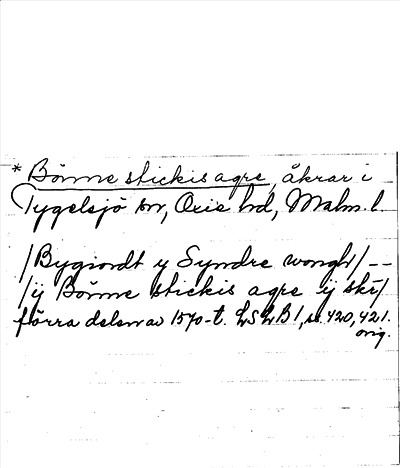 * Bönne stickis agre, åkrar i
Tygelsjö sn, Oxie hd, Malm. l.
/Bygiordt y Syndre wongh/ --
/ij Bönne stickis agre ij skı/
förra delen av 1570-t. LSLB 1, ss. 420, 421.
orig.